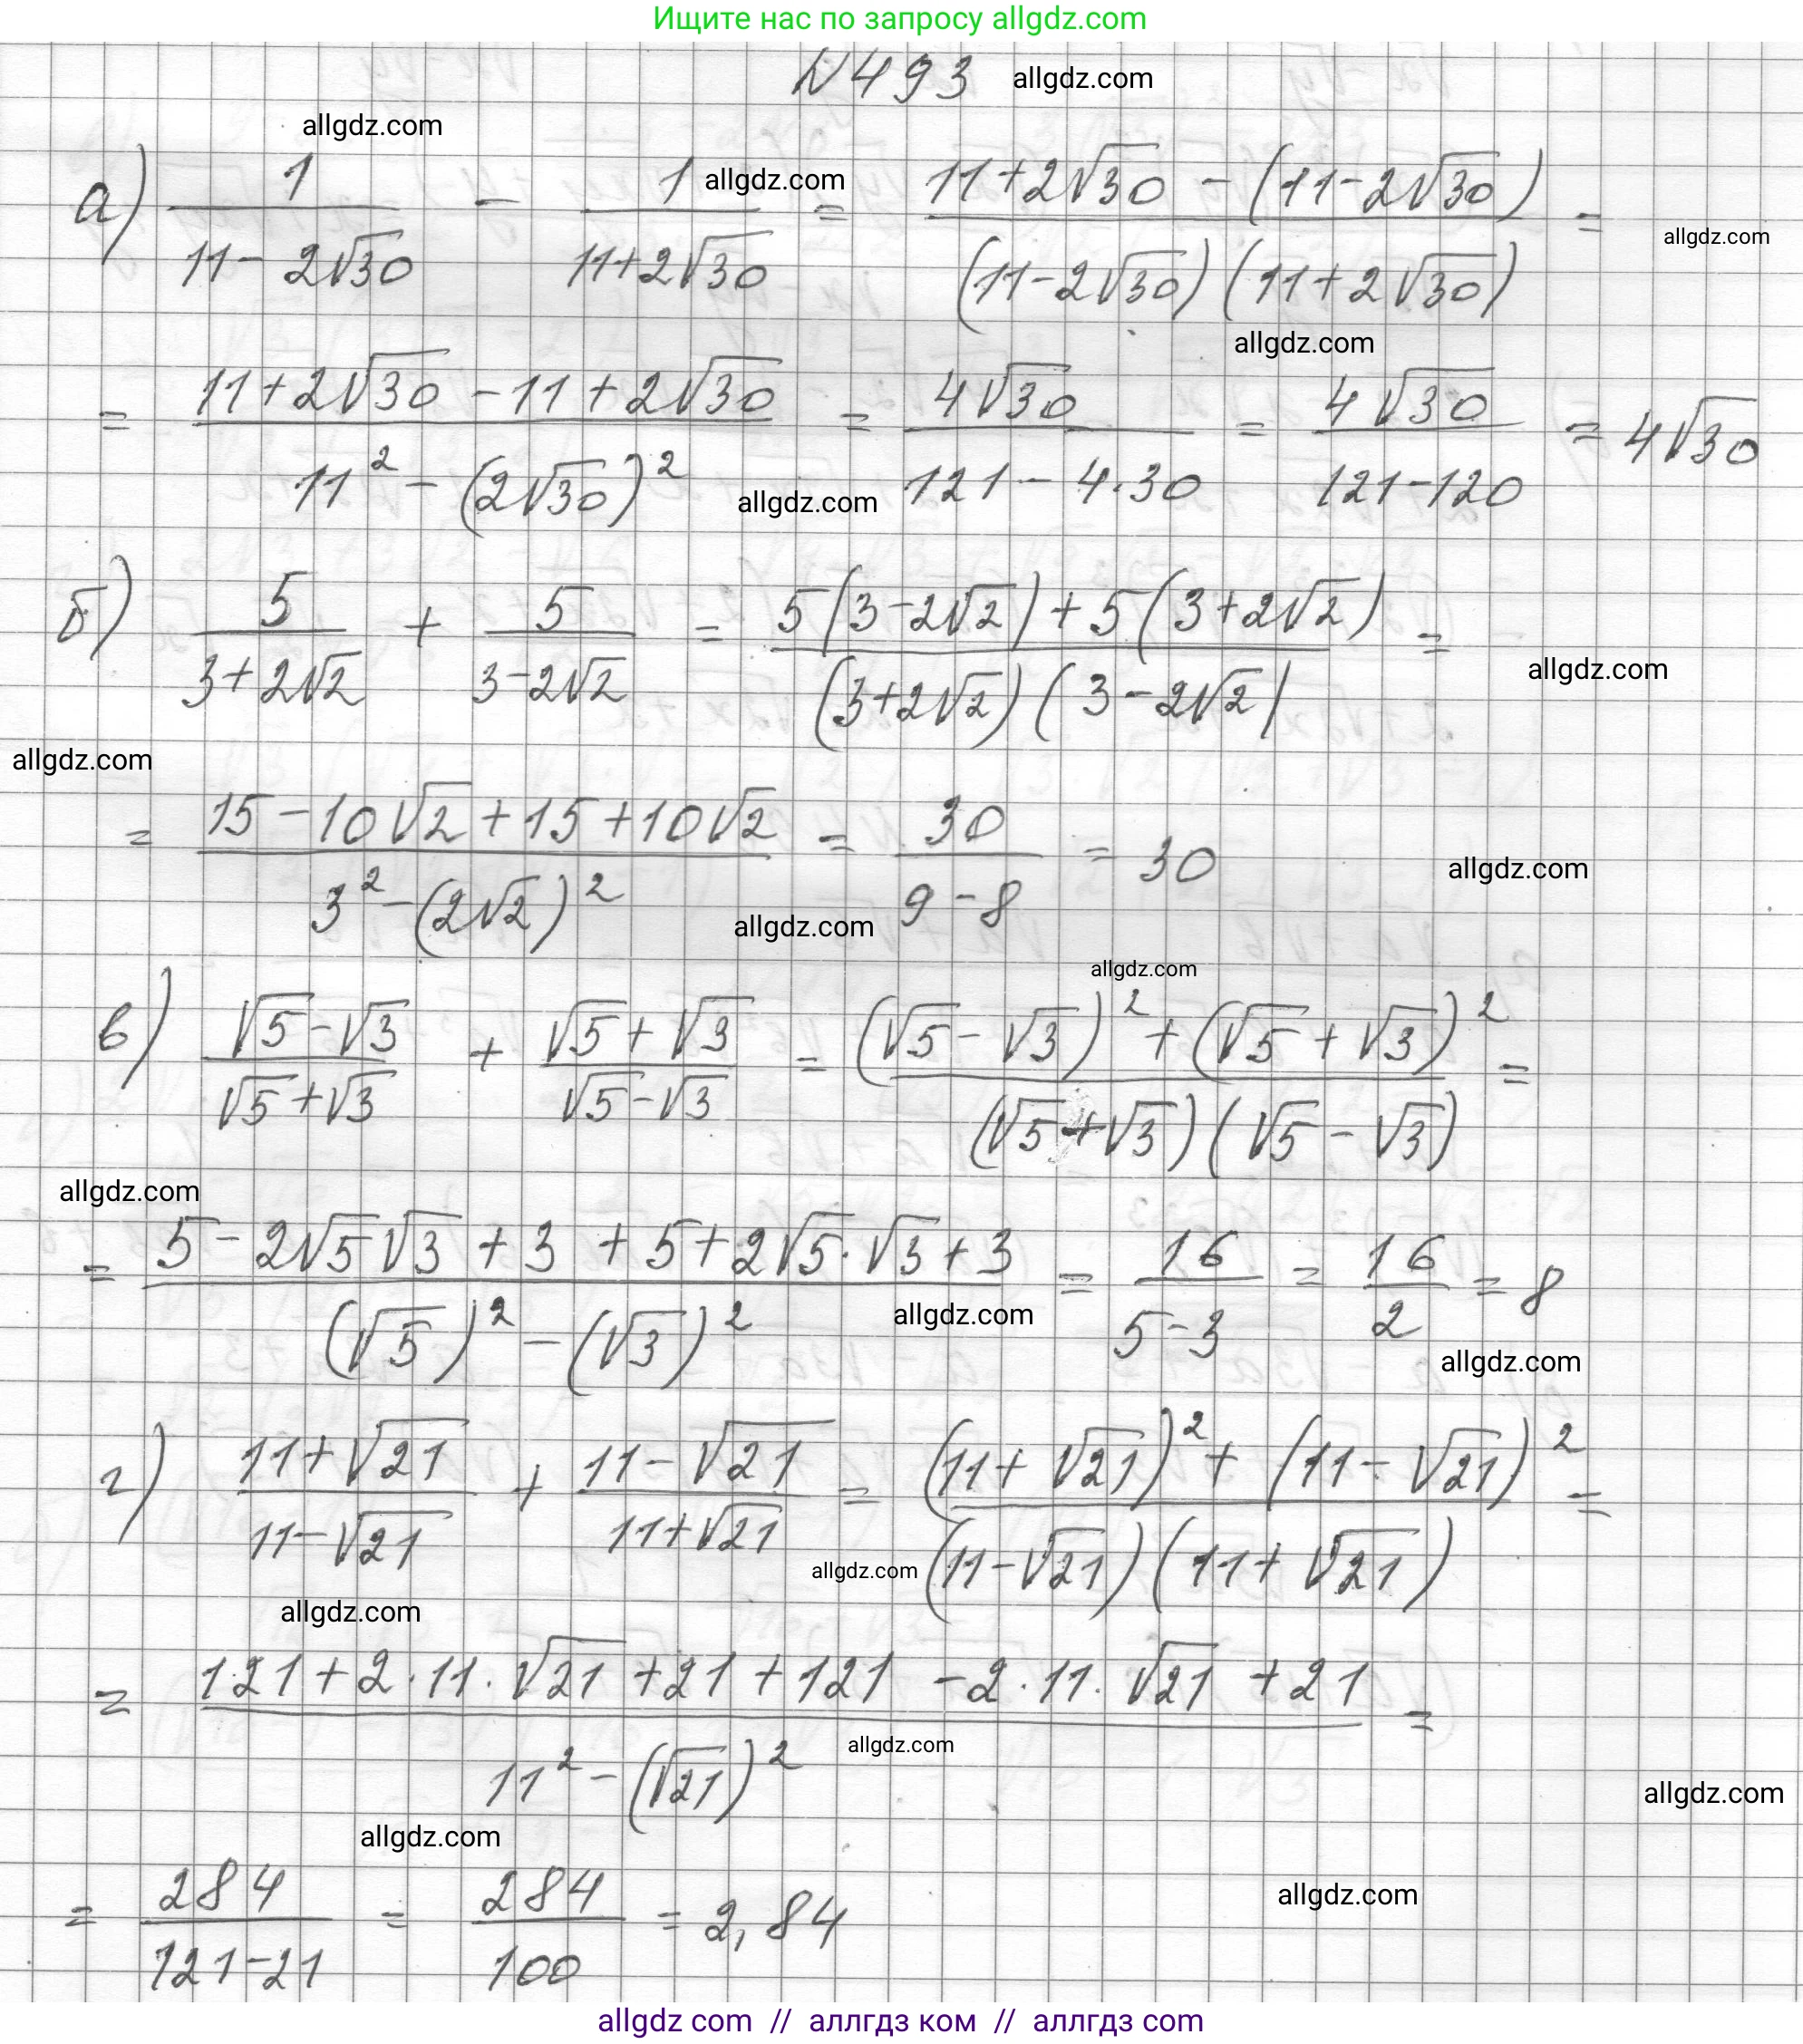 Ищите нас по запросу allgdz.com
№493 allgdz.com
allgdz.com
а) 1/(11-2√30) - 1/(11+2√30) = (11+2√30 - (11-2√30))/((11-2√30)(11+2√30)) =
allgdz.com
allgdz.com
allgdz.com
= (11+2√30 - 11+2√30)/(11² - (2√30)²) = 4√30/(121-4·30) = 4√30/(121-120) = 4√30
allgdz.com
б) 5/(3+2√2) + 5/(3-2√2) = (5(3-2√2)+5(3+2√2))/((3+2√2)(3-2√2)) =
allgdz.com
allgdz.com
= (15-10√2+15+10√2)/(3²-(2√2)²) = 30/(9-8) = 30
allgdz.com
allgdz.com
allgdz.com
в) (√5-√3)/(√5+√3) + (√5+√3)/(√5-√3) = ((√5-√3)²+(√5+√3)²)/((√5+√3)(√5-√3)) =
allgdz.com
= (5-2√5√3+3+5+2√5·√3+3)/((√5)²-(√3)²) = 16/(5-3) = 16/2 = 8
allgdz.com
allgdz.com
г) (11+√21)/(11-√21) + (11-√21)/(11+√21) = ((11+√21)²+(11-√21)²)/((11-√21)(11+√21)) =
allgdz.com
allgdz.com
= (121+2·11·√21+21+121-2·11·√21+21)/(11²-(√21)²) =
allgdz.com
allgdz.com
allgdz.com
= 284/(121-21) = 284/100 = 2,84
allgdz.com
allgdz com // аллгдз ком // аллгдз com